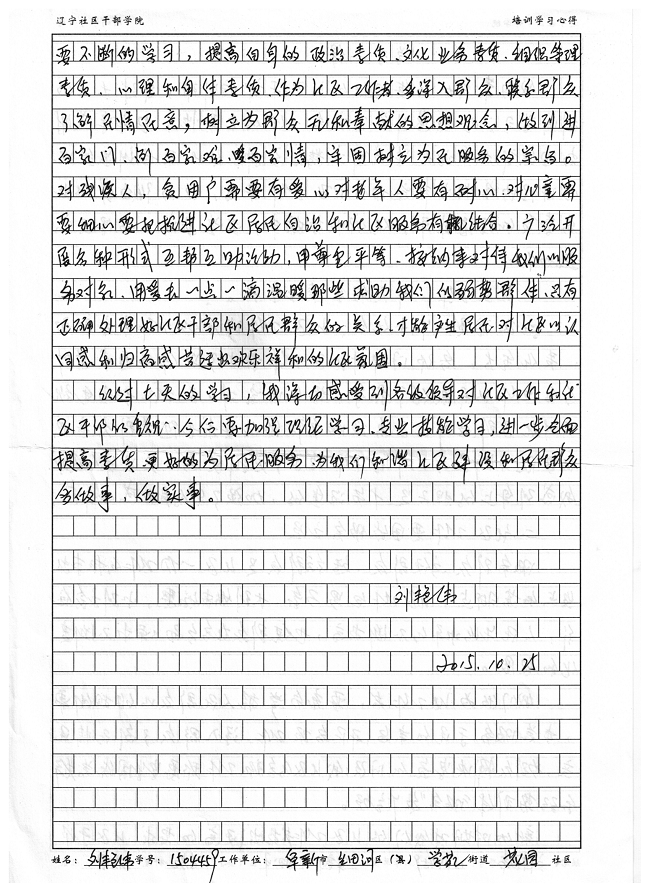 辽宁社区干部学院 培训学习心得
要不断的学习，提高自身的政治素质、文化业务素质、组织管理
素质、心理和身体素质、作为社区工作者、要深入群众、联系群众
了解民情民意，树立为群众无私奉献的思想观念，做到进
百家门、解百家难、暖百家情，牢固树立为民服务的宗旨。
对残疾人，贫困户需要有爱心对老年人要有耐心，对儿童需
要细心要把推进社区居民自治和社区服务有机结合。广泛开
展各种形式互帮互助活动，用尊重平等、接纳来对待我们的服
务对象、用爱去一点一滴温暖那些求助我们的弱势群体，只有
正确处理好社区干部和居民群众的关系，才能产生居民对社区的认
同感和归属感营造出欢乐祥和的社区氛围。
经过七天的学习，我深切感受到各级领导对社区工作和社
区干部的重视，今后要加强理论学习、专业技能学习，进一步全面
提高素质更好的为居民服务，为我们和谐社区建设和居民群众
多做事，做实事。
刘艳伟
2015.10.25
姓名： 刘艳伟 学号： 1504459 工作单位： 阜新 市 细河 区（县） 学苑 街道 花园 社区